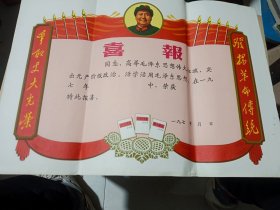 喜報
發揚革命传统
争取更大光荣
同志：高举毛泽东思想伟大红旗，突
出无产阶级政治，活学活用毛泽东思想，在一九
七 年 中，荣获
特此报喜。
一九七 年 月 日